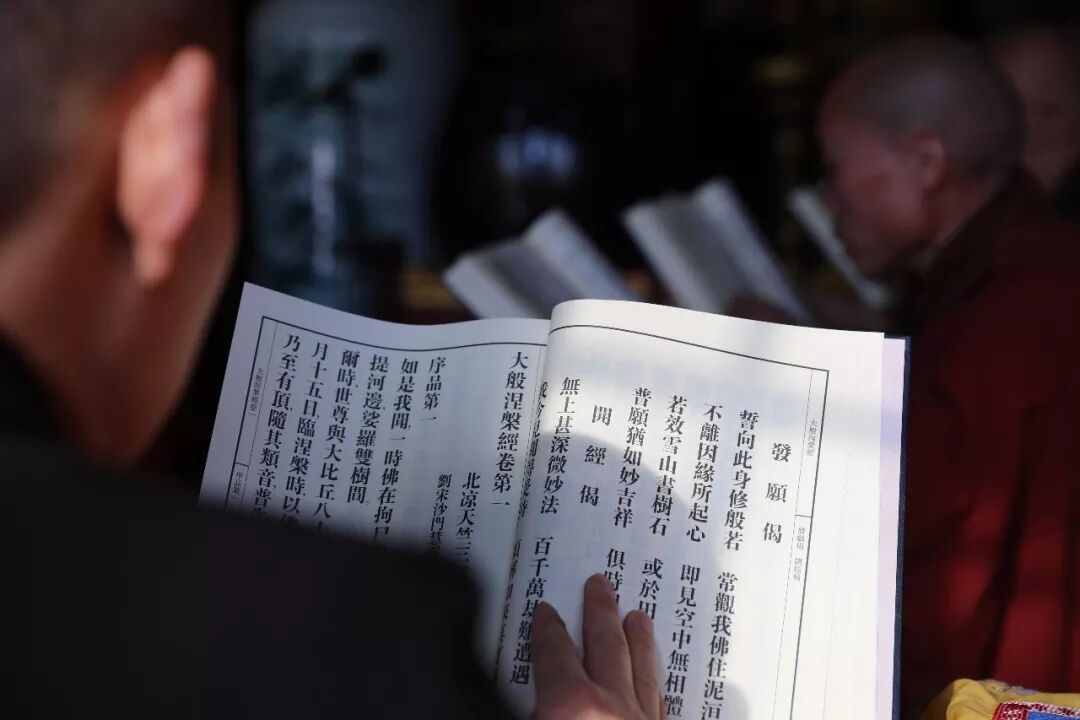 大般涅槃經
發願偈 開經偈
發願偈
誓向此身修般若 常觀我佛住泥洹
不離因緣所起心 即見空中無相體
若效雪山書樹石 或於田
普願猶如妙吉祥 俱時
開經偈
無上甚深微妙法 百千萬劫難遭遇
我今見聞
大般涅槃經卷第一
北凉天竺三
劉宋沙門慧
序品第一
如是我聞一時佛在拘尸
提河邊娑羅雙樹間
爾時世尊與大比丘八
月十五日臨涅槃時以
乃至有頂隨其類音普
大般涅槃經卷一
序品第一